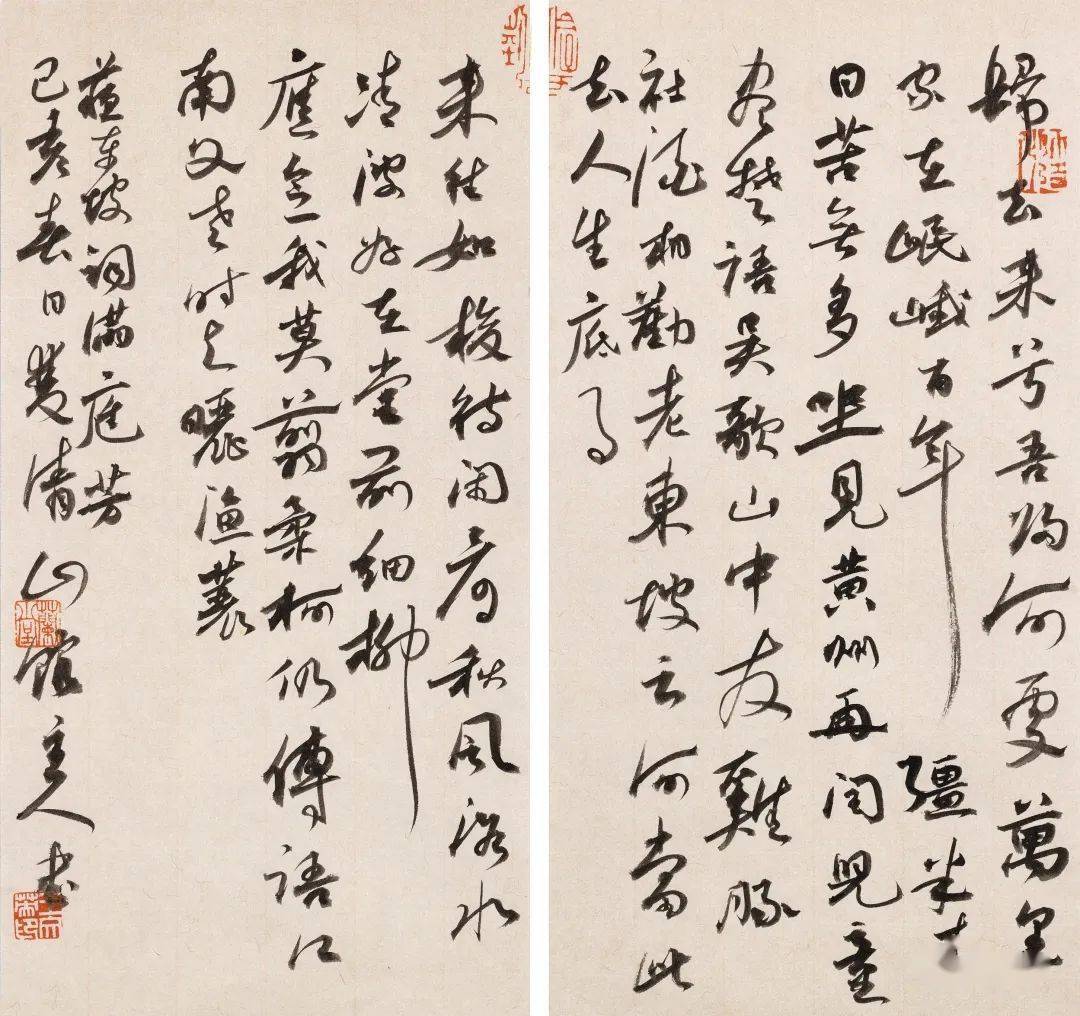 歸去来兮吾歸何處萬里
家在岷峨百年彊半来
日苦無多坐見黃州再閏兒童
盡楚語吳歌山中友雞豚
社酒相勸老東坡云何當此
去人生底事
来往如梭待閑看秋風洛水
清波好在堂前細柳
應念我莫翦柔柯仍傳語江
南父老時与曬漁蓑
蘇東坡詞滿庭芳
己亥春日雙清山館主人書